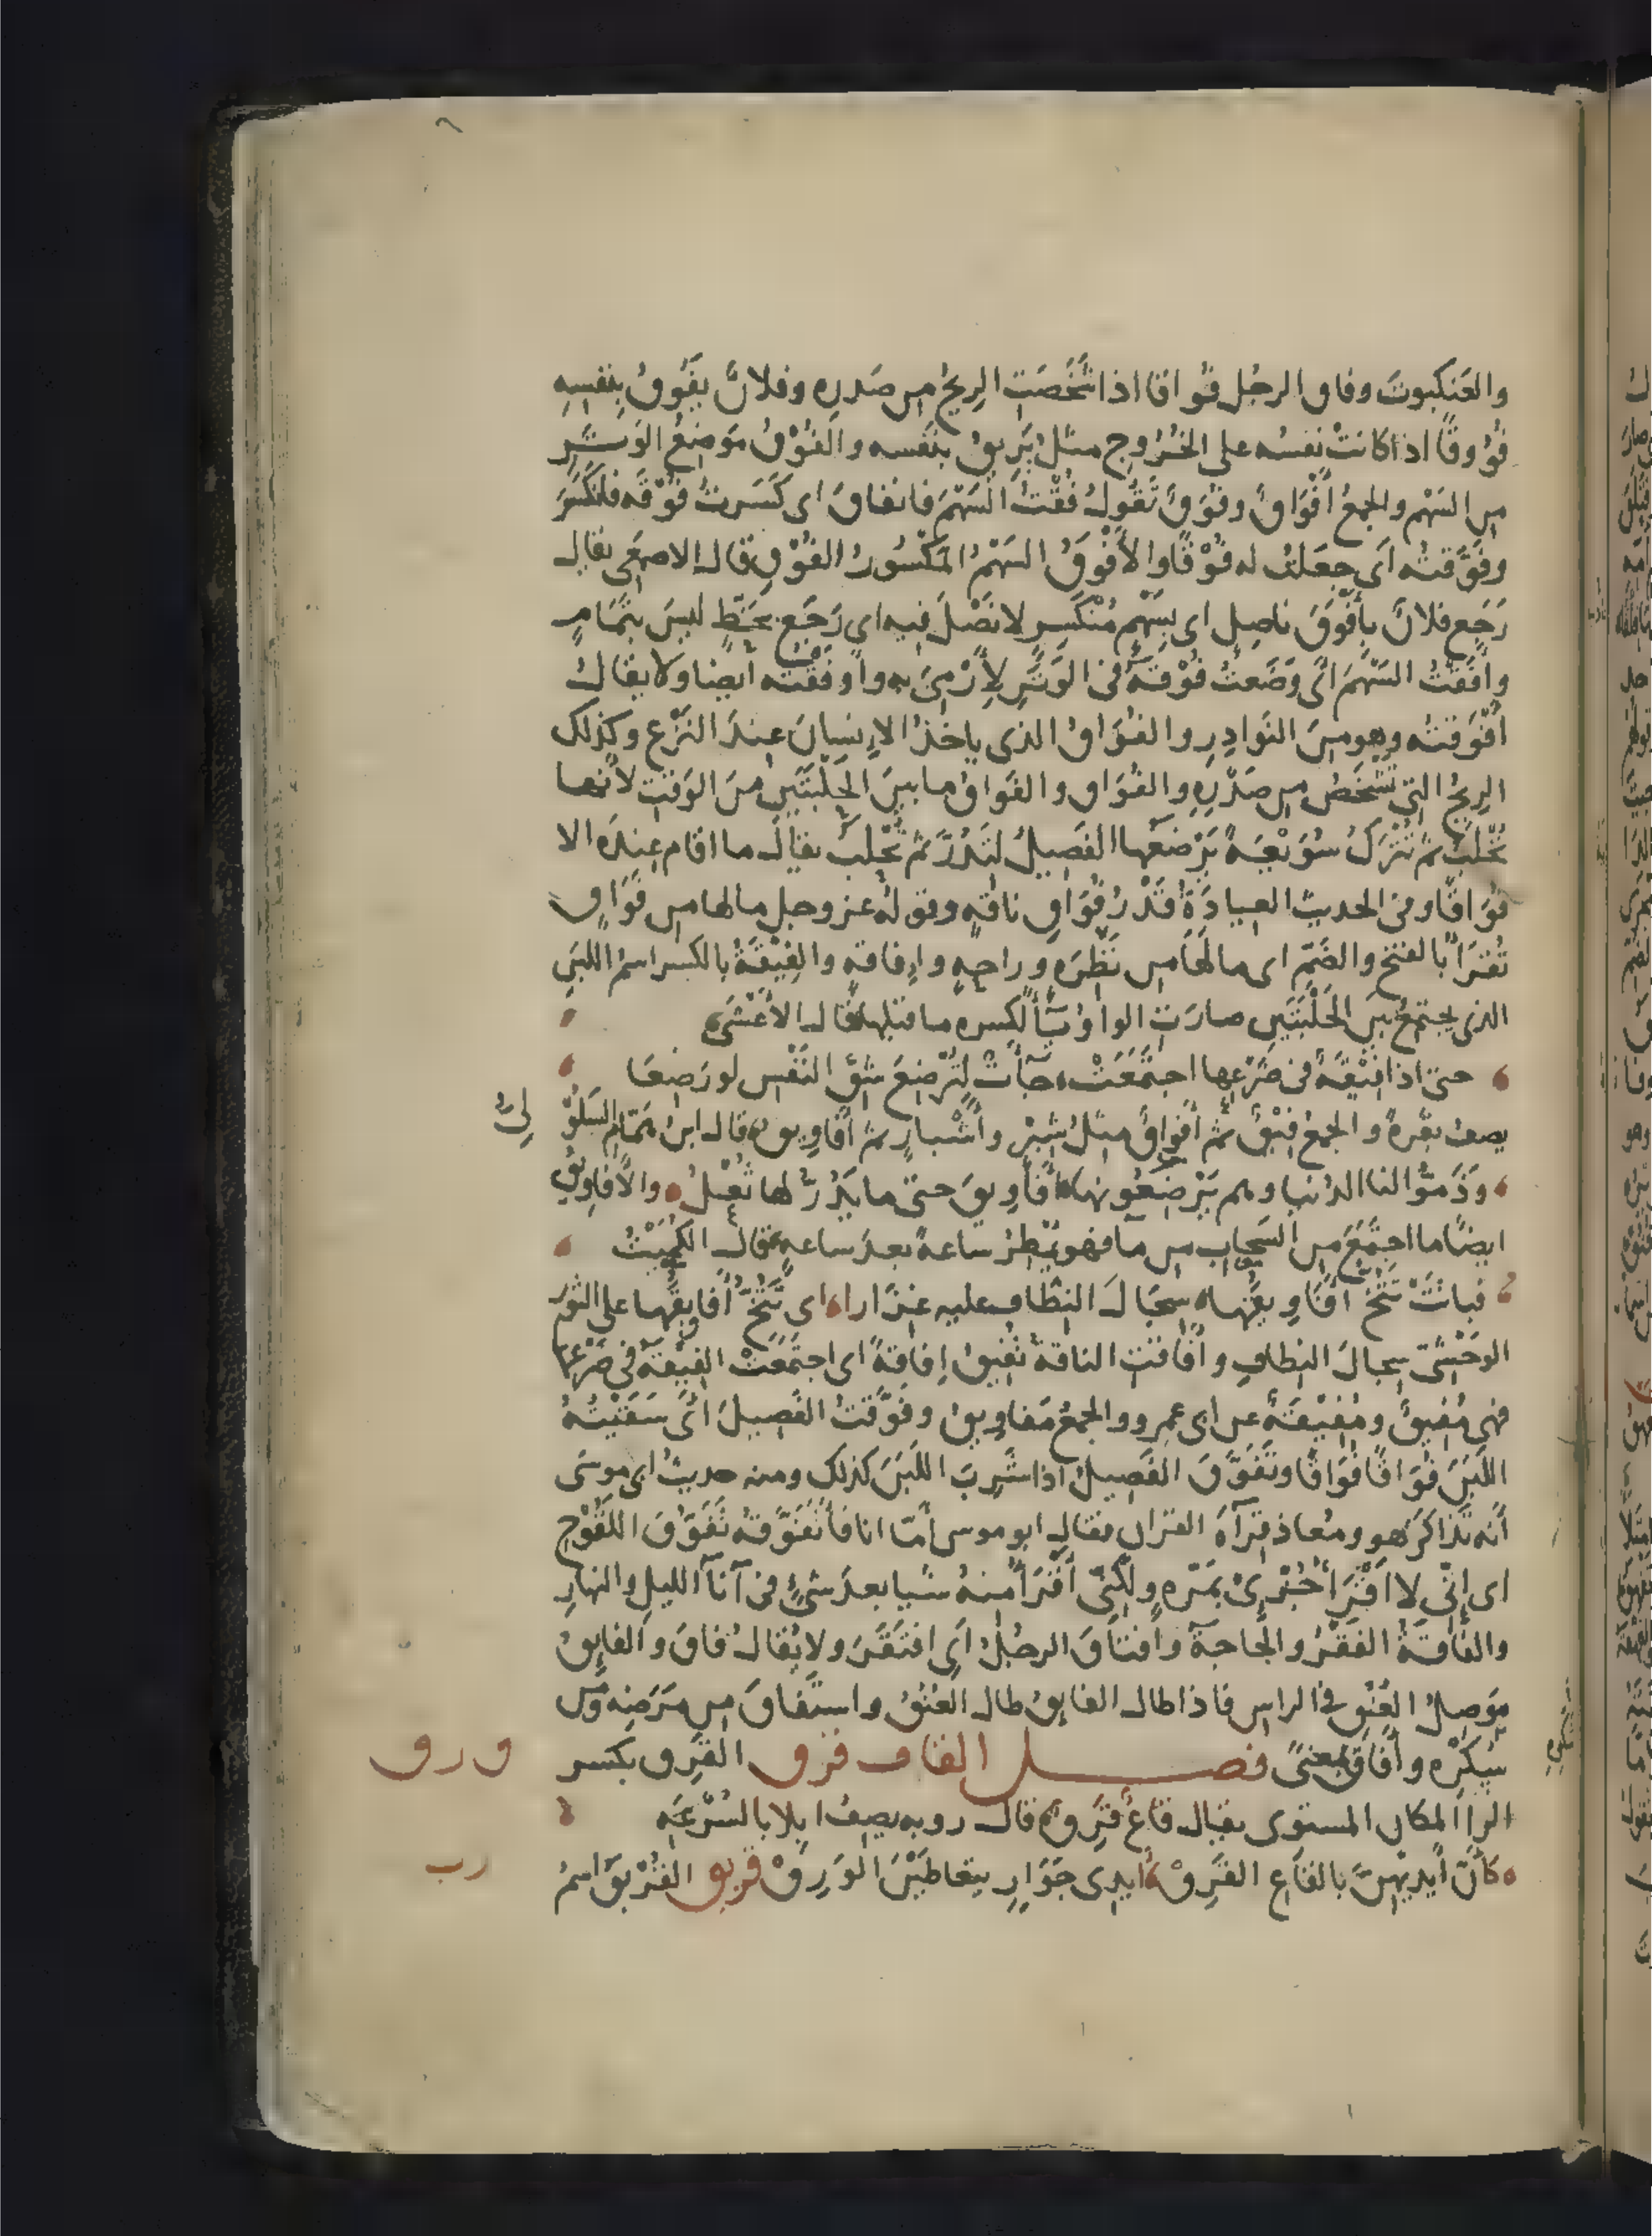 والعَنكبوتَ وفاق الرجُل فُواقا اذا شَخَصَتِ الرِيحُ من صَدرِه وفلانٌ يفُوقُ بِنفسِهِ
فُوُوقًا اذا كانتْ نفسُه على الخُرُوج مثلُ يَرِيقُ بنفسه والفُوْقُ مَوضِعُ الوَتَرِ
من السَهْم والجمعُ أَفْوَاقٌ وفُوَقٌ تَقُولُ فُقْتُ السَهْمَ فانفاقَ اى كَسَرتُ فُوْقَه فانكَسَرَ
وفَوَّقتُه اى جعَلتُ له فُوْقًا والأَفْوَقُ السَهْمُ المَكْسُورُ الفُوْقِ قال الاصمعى يقال
رَجَع فلانٌ بِأَفْوَقَ ناصِلٍ اى بِسَهْمٍ مُنْكَسِرٍ لا نَصْلَ فيه اى رَجَع بحَظٍّ ليسَ بتَمَامٍ
وأَفَقْتُ السَهْمَ اى وَضَعتُ فُوْقَهُ فى الوَتَرِ لأَرْمِىَ به وأَوْفَقْتُه ايضا ولا يقالُ
أَفْوَقتُه وهو مِنَ النَوادِرِ والفُوَاقُ الذى ياخذُ الإِنسانَ عِندَ النَزْعِ وكذلك
الرِيحُ التى تشخَصُ من صَدْرِهِ والفُوَاق والفَوَاقُ ما بينَ الحَلْبَتَينِ منَ الوَقتِ لأنها
تُحْلَبُ ثم تُتْرَكُ سُوَيْعَةً يَرْضَعُها الفَصِيلُ لتَدُرَّ ثم تُحْلَبُ يقال ما اقام عِندَه الا
فُوَاقًا وفى الحديث العِيادَةُ قَدْرُ فُوَاقِ ناقةٍ وقوله عز وجل ما لها من فَوَاقٍ
تُقرَأُ بالفتحِ والضَمِّ اى ما لَهَا من نَظِرَةٍ وراحةٍ وإِفاقةٍ والفِيْقَةُ بالكسر اسمُ اللبَنِ
الذى يجتمِعُ بَينَ الحَلْبَتَينِ صارَتِ الواوُ يَاءً لكسره ما قبلها قال الأَعْشَى
حتى اذا فِيْقَةٌ فى ضَرْعِها اجتَمَعَتْ جآءَتْ لِتُرْضِعَ شِقَّ النَفْسِ لو رَضِعَا
يصف بقَرةً والجمعُ فِيْقٌ ثم أَفْوَاقٌ مثلُ شِبْرٍ وأَشْبارٍ ثم أَفاوِيقُ قال ابنُ هَمَّامٍ السَلُوْ
لِىُّ
وَذَمُّوا لنا الدُنيا وهم يَرْضَعُونها أَفاوِيقَ حتى ما يَدُرُّ لها ثُعْلُ والأَفاوِيقُ
ايضًا ما اجتمَعَ من السَحابِ من مآ فهو يُمْطِرُ ساعةً بعدَ ساعةٍ قال الكُمَيْتُ
فباتَتْ تَثُجُّ أَفَاوِيقُها سِجَالَ النِطَافِ عليه غِزَارا اى تَثُجُّ أَفاوِيقُها على الثور
الوَحْشِىِّ سِجالَ النِطافِ وأَفَاقَتِ الناقةُ تُفِيقُ إِفاقةً اى اجتَمَعَتْ الفِيْقَةُ فى ضَرْعِها
فهى مُفِيقٌ ومُفِيْقَةٌ عن ابى عمرو والجمعُ مَفاوِيقُ وفَوَّقتُ الفَصِيلَ اى سَقَيْتُهُ
اللَبَنَ فُوَاقًا فُوَاقًا وتَفَوَّقَ الفَصِيلُ اذا شَرِبَ اللَبَنَ كذلك ومنه حديثُ ابى موسَى
أَنه تَذاكرَ هو ومُعاذ قِرآءَةَ القران فقال ابو موسى أَمّا انا فأَتَفَوَّقُهُ تَفَوُّقَ اللَّقُوْحِ
اى إِنى لا اقْرَأُ جُزْئِى بمَرّةٍ ولكنِّى أَقْرَأُ منهُ شيا بعدَ شىءٍ فى آنآءِ الليلِ والنهارِ
والفَاقَةُ الفَقْرُ والحَاجةُ وافتاقَ الرجُلُ اى افتَقَرَ ولا يُقالُ فاقَ والفايِقُ
مَوصِلُ العُنُقِ فى الراس فاذا طال الفايق طال العُنُقُ واستَفاقَ من مَرَضِه ومن
سُكْرِه وأَفَاقَ بمعنًى فصــــل القاف قرق القَرِق بكسر
و ر ق
الرآ المكان المستوى يقال قاعٌ قَرِقٌ قال روبه يصِفُ ابلا بالسُرْعَةِ
كأَنَّ أَيدِيهِنَّ بالقَاعِ القَرِقْ أَيدِى جَوَارٍ يتعاطَيْنَ الوَرِقْ قربق القُرْبَقُ اسمُ
رب